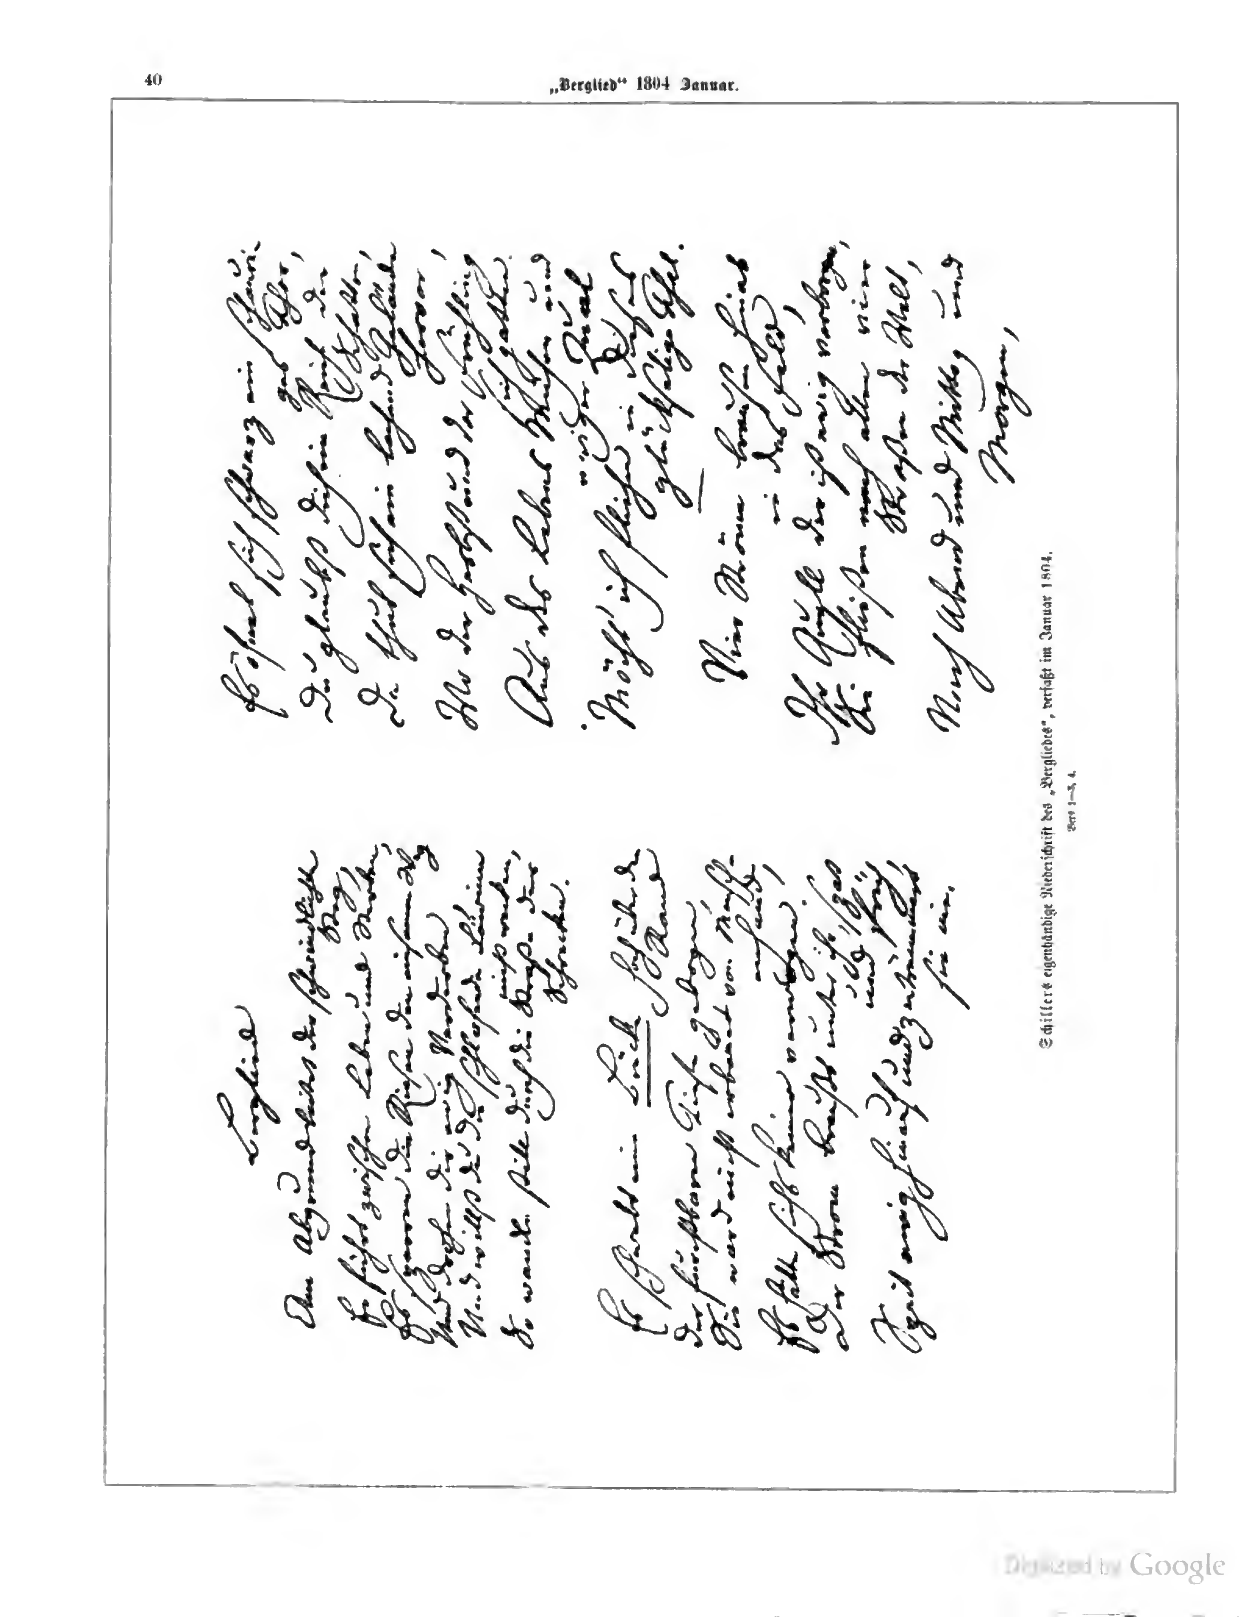 40
„Berglied“ 1804 Januar.
Berglied
Am Abgrund leitet der schwindlichte
Steg,
Er führt zwischen Leben und Sterben,
Es sperren die Riesen den einsamen Weg
Und drohen dir ewig Verderben
Und willst du die schlafende Löwin
nicht wecken,
So wandle still durch die Straße der
Schrecken.
Es schwebt eine Brücke hoch über den
Rand
Der furchtbaren Tiefe gebogen,
Sie ward nicht erbauet von Mensch-
enhand,
Es hätte sichs keiner verwogen.
Der Strom braußt unter ihr spat
und früh,
Speit ewig hinauf und zertrümmert
sie nie.
Es öfnet sich schwarz ein schauri-
ges Thor,
Du glaubst dich im Reich der
Schatten,
Da thut sich ein lachend Gelände
hervor,
Wo der Herbst und der Frühling
sich gatten.
Aus des Lebens Mühen und
ewiger Qual
Möcht' ich fliehen in dieses
glückselige Thal.
Vier Ströme brausen hinab
in das Feld,
Ihr Quell der ist ewig verborgen,
Sie fließen nach allen vier
Straßen der Welt,
Nach Abend und Mittag und
Morgen,
Schillers eigenhändige Niederschrift des „Bergliedes“, verfaßt im Januar 1804.
Digitized by Google